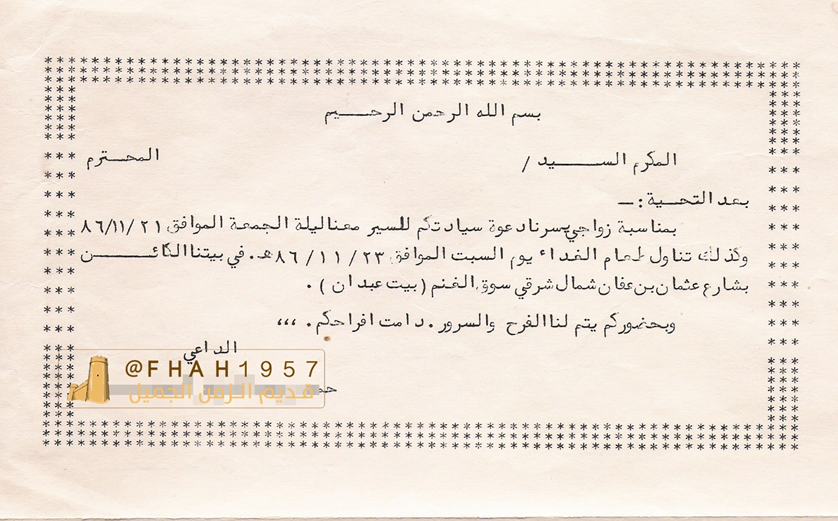 بسم الله الرحمن الرحـــيم
المكرم الســـــيد / المحــترم
بعد التحــية : ـــ
بمناسبة زواجي يسرنا دعوة سيادتكم للسير معنا ليلة الجمعة الموافق ٨٦/١١/٢١
وكذلك تناول طعام الغداء يوم السبت الموافق ٢٣ / ١١ / ٨٦هـ. في بيتنا الكائـــــــن
بشارع عثمان بن عفان شمال شرقي سوق الغنم ( بيت عبدان ) .
وبحضوركم يتم لنا الفرح والسرور . دامت افراحكم . ،،،
الداعي
@FHAH1957
قديم الزمن الجميل